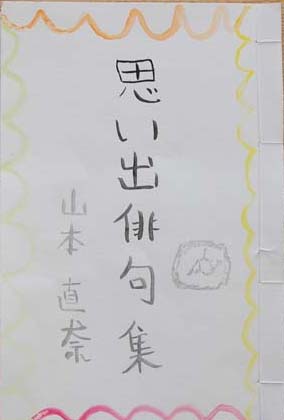 思い出俳句集
山本直奈